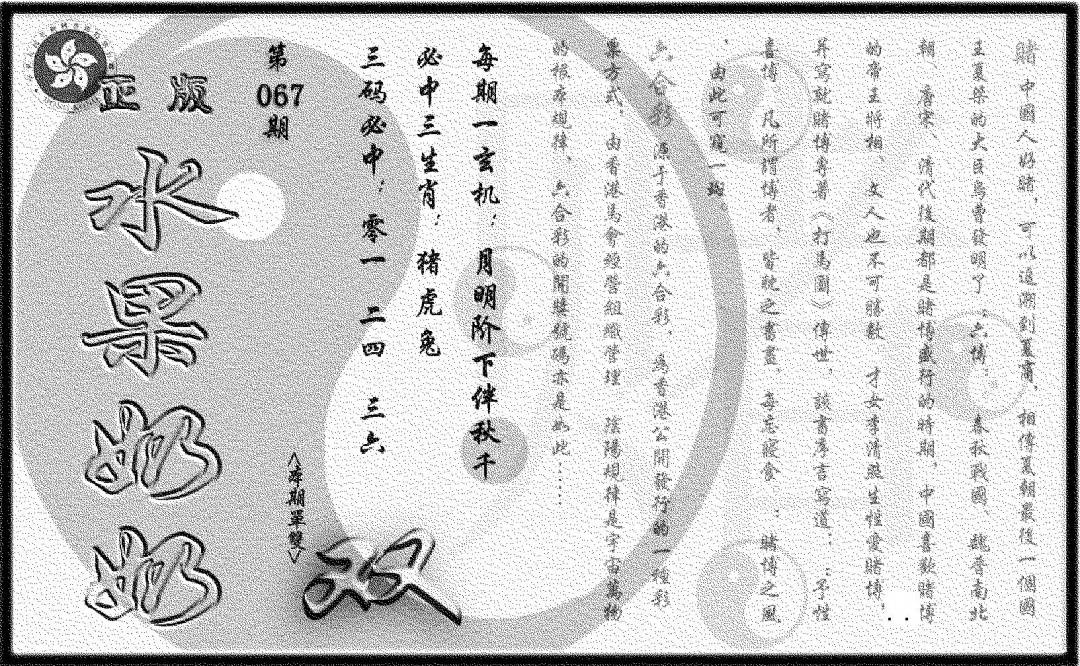 賭中國人好賭，可以追溯到夏商，相傳夏朝最後一個國
王夏桀的大臣烏曹發明了：六博： 春秋戰國、魏晉南北
朝、唐宋、清代後期都是賭博盛行的時期，中國喜歡賭博
的帝王將相、文人也不可勝數 才女李清照生性愛賭博，
并寫就賭博專著《打馬圖》傳世，該書序言寫道：：予性
喜博 凡所謂博者，皆耽之晝盡，每忘寢食 ：賭博之風
，由此可窺一斑。
六合彩 源于香港的六合彩，為香港公開發行的一種彩
票方式，由香港馬會經營組織管理 陰陽規律是宇宙萬物
的根本規律，六合彩的開獎號碼亦是如此……
每期一玄机：月明阶下伴秋千
必中三生肖：猪虎兔
三码必中：零一 二四 三六
第
067
期
正版
水果奶奶
<本期單雙>
双